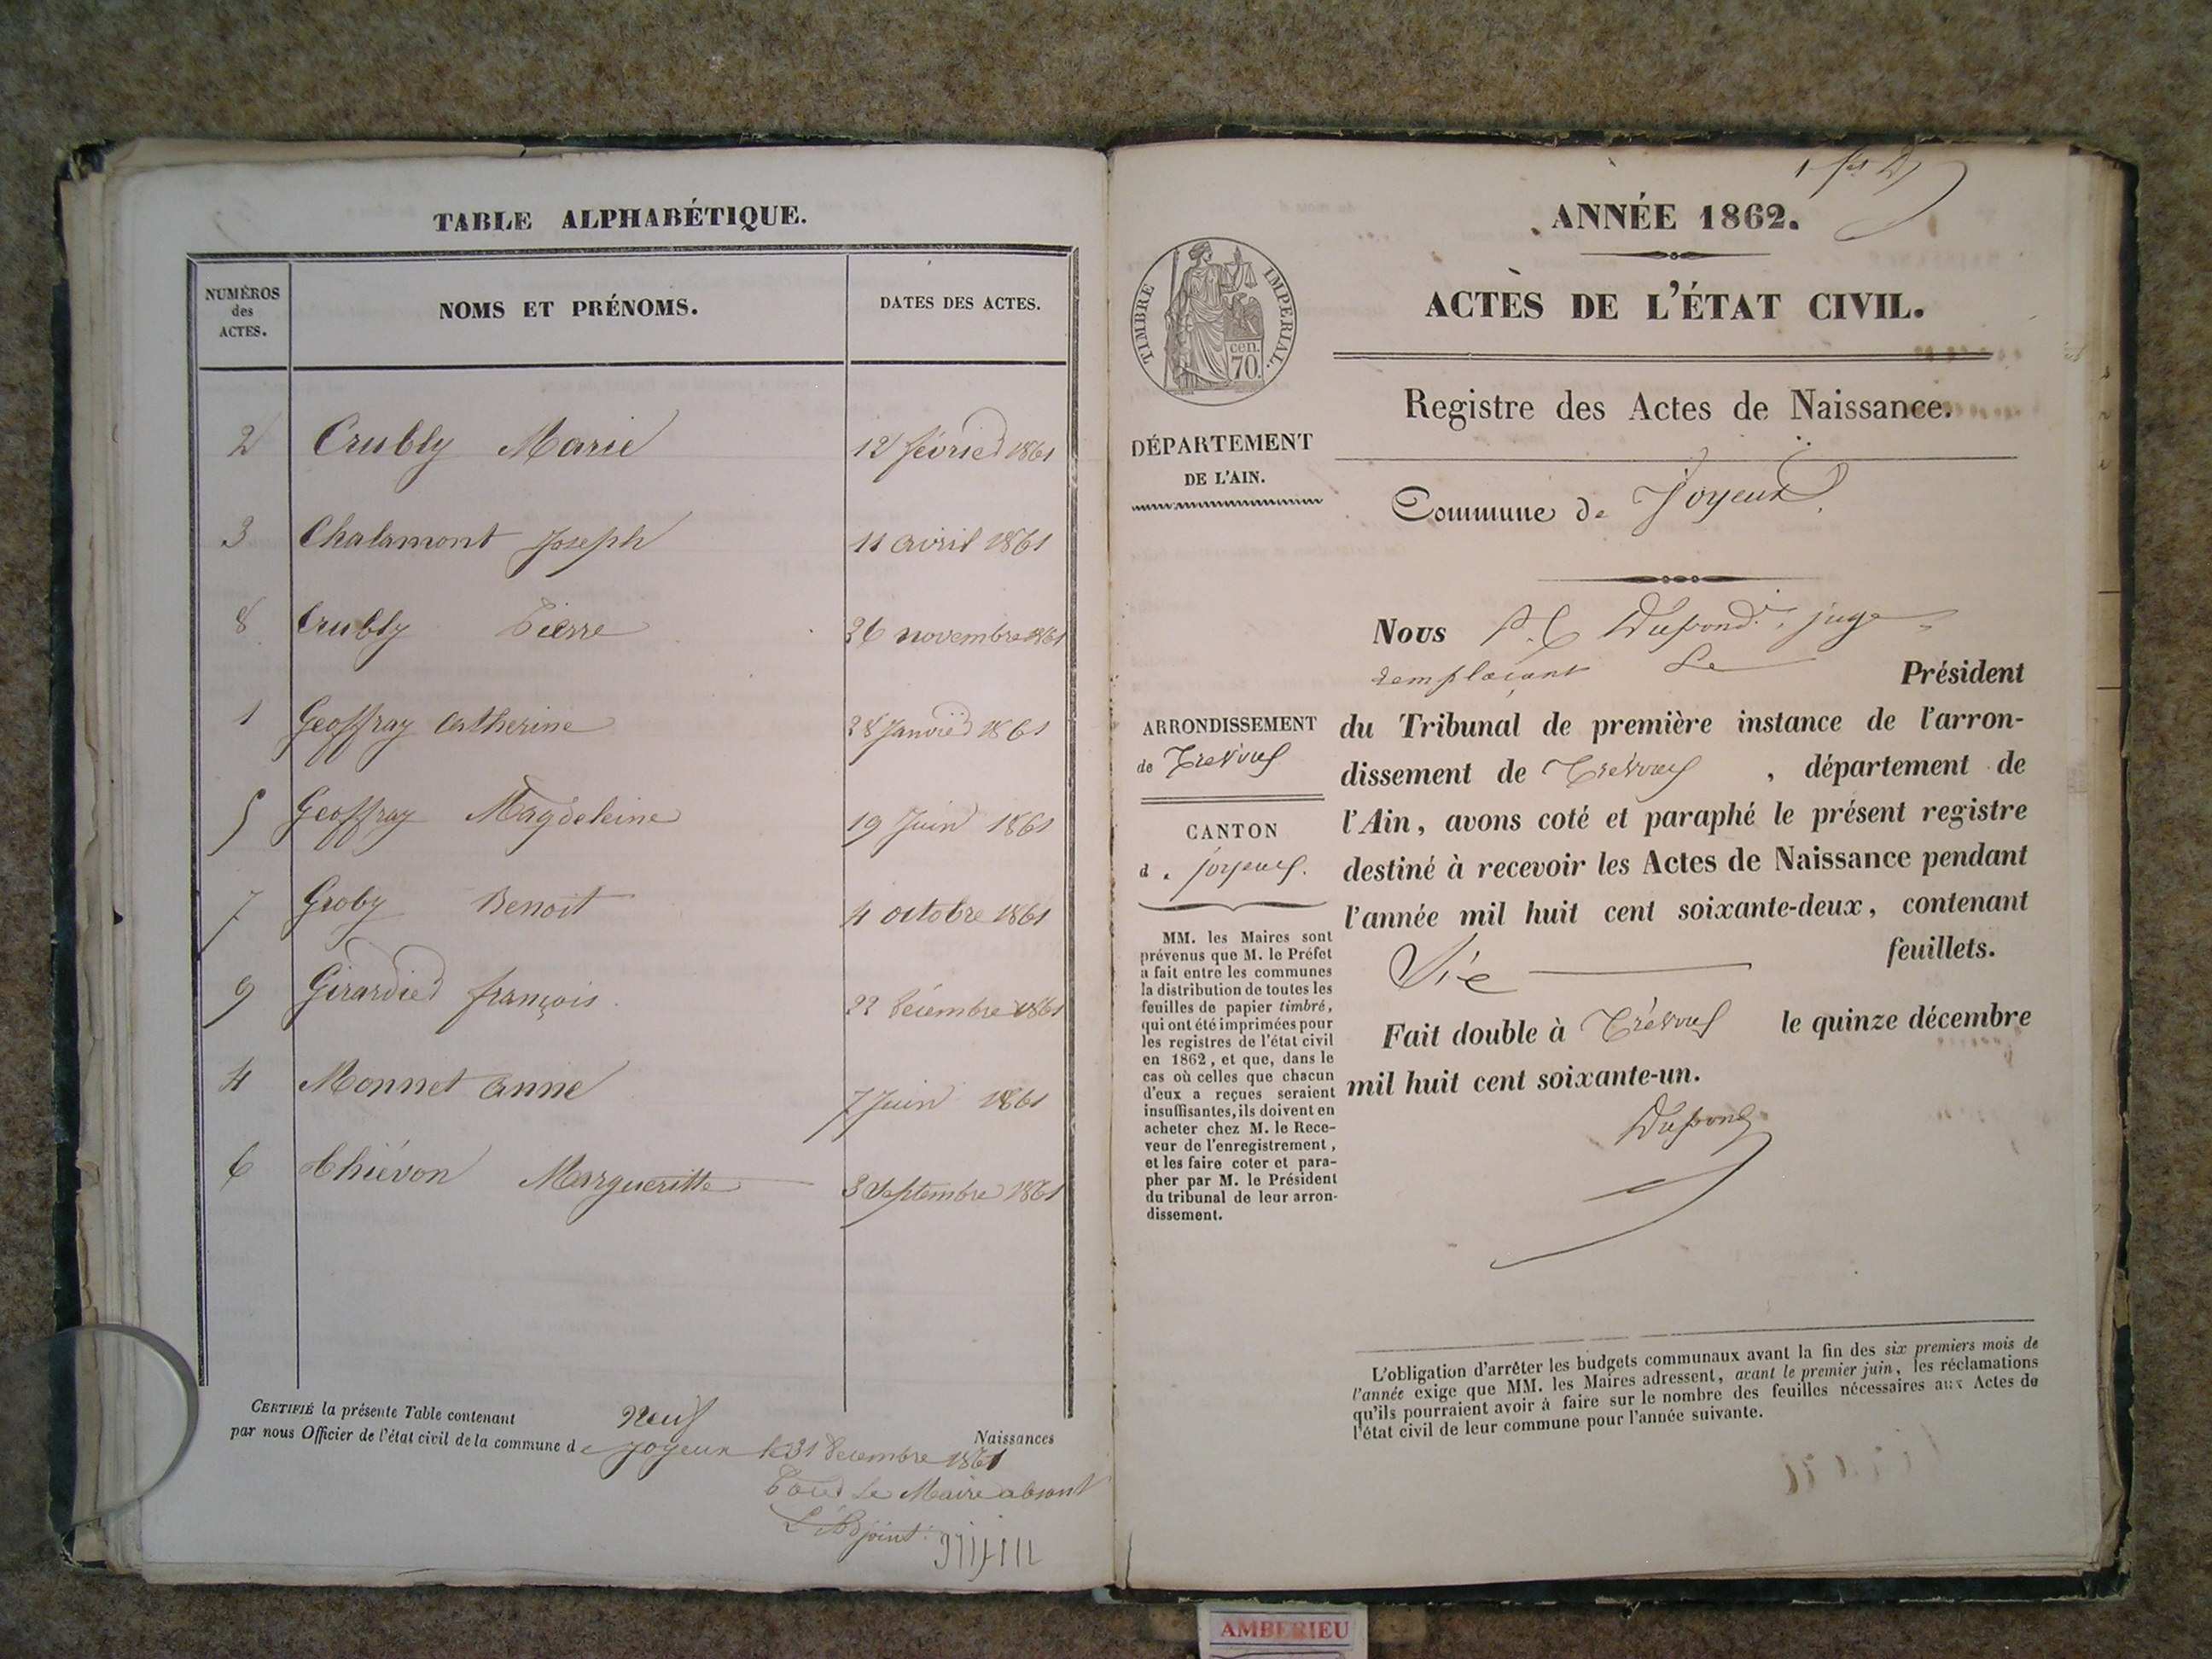 TABLE ALPHABÉTIQUE.
NUMÉROS des ACTES.
NOMS ET PRÉNOMS.
DATES DES ACTES.
2 Crubly Marie 12 février 1861
3 Chalamont Joseph 11 avril 1861
8 Crubly Pierre 26 novembre 1861
1 Geoffray Catherine 28 Janvier 1861
5 Geoffray Magdeleine 19 Juin 1861
7 Groby Benoit 4 octobre 1861
9 Girardier françois 22 décembre 1861
4 Monnet anne 7 Juin 1861
6 Thiévon Margueritte 3 Septembre 1861
CERTIFIÉ la présente Table contenant neuf Naissances
par nous Officier de l'état civil de la commune de Joyeux le 31 décembre 1861
Pour Le Maire absent
L'Adjoint
ANNÉE 1862.
ACTES DE L'ÉTAT CIVIL.
TIMBRE IMPÉRIAL.
cen.
70.
Registre des Actes de Naissance.
DÉPARTEMENT
DE L'AIN.
Commune de Joyeux
Nous Dupond, juge
remplaçant Le Président
du Tribunal de première instance de l'arron-
dissement de Trévoux, département de
l'Ain, avons coté et paraphé le présent registre
destiné à recevoir les Actes de Naissance pendant
l'année mil huit cent soixante-deux, contenant
Six feuillets.
Fait double à Trévoux le quinze décembre
mil huit cent soixante-un.
Dupond
ARRONDISSEMENT
de Trévoux
CANTON
d. joyeux.
MM. les Maires sont
prévenus que M. le Préfet
a fait entre les communes
la distribution de toutes les
feuilles de papier timbré,
qui ont été imprimées pour
les registres de l'état civil
en 1862, et que, dans le
cas où celles que chacun
d'eux a reçues seraient
insuffisantes, ils doivent en
acheter chez M. le Rece-
veur de l'enregistrement,
et les faire coter et para-
pher par M. le Président
du tribunal de leur arron-
dissement.
L'obligation d'arrêter les budgets communaux avant la fin des six premiers mois de
l'année exige que MM. les Maires adressent, avant le premier juin, les réclamations
qu'ils pourraient avoir à faire sur le nombre des feuilles nécessaires aux Actes de
l'état civil de leur commune pour l'année suivante.
AMBERIEU